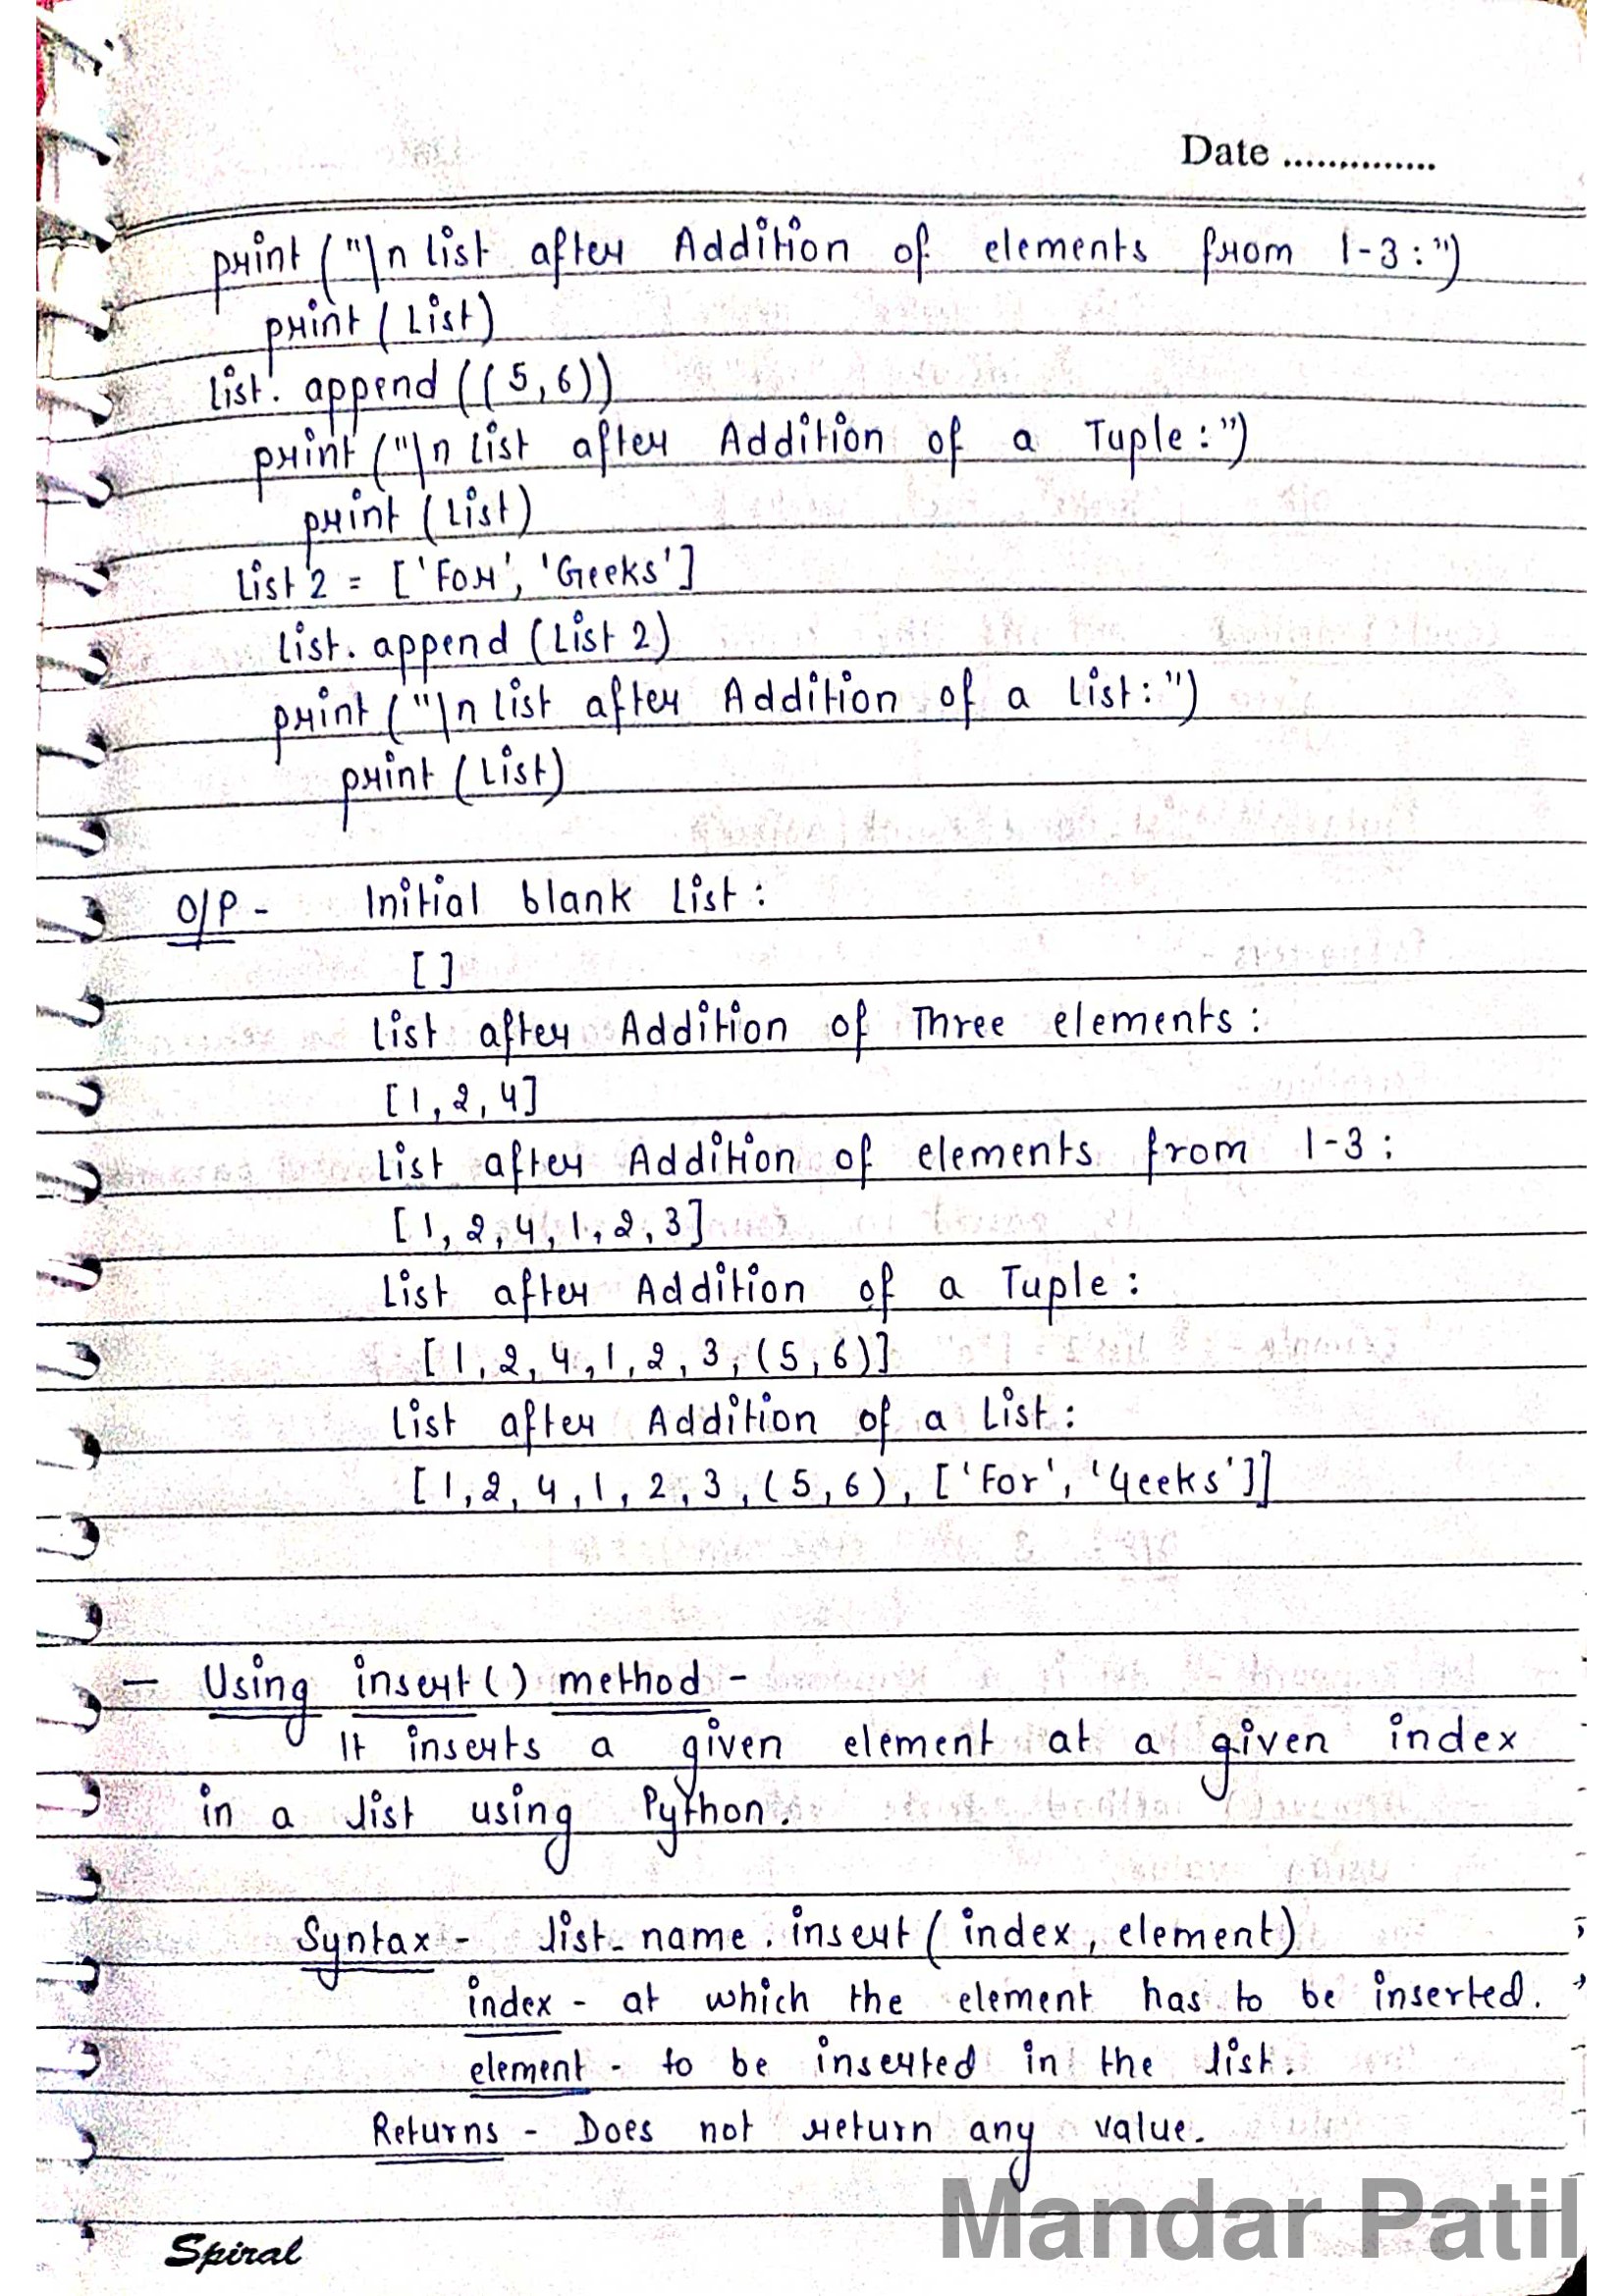 Date ..............
print ("\n list after Addition of elements from 1-3:")
print (List)
list. append ((5,6))
print ("\n list after Addition of a Tuple:")
print (List)
List 2 = ['For', 'Geeks']
list. append (List 2)
print ("\n list after Addition of a list:")
print (List)
O/P - Initial blank List:
[ ]
list after Addition of Three elements:
[1, 2, 4]
List after Addition of elements from 1-3:
[1, 2, 4, 1, 2, 3]
List after Addition of a Tuple:
[1, 2, 4, 1, 2, 3, (5, 6)]
list after Addition of a List:
[1, 2, 4, 1, 2, 3, (5, 6), ['For', 'Geeks']]
- Using insert() method -
It inserts a given element at a given index
in a list using Python.
Syntax - list_name. insert (index, element)
index - at which the element has to be inserted.
element - to be inserted in the list.
Returns - Does not return any value.
Mandar Patil
Spiral